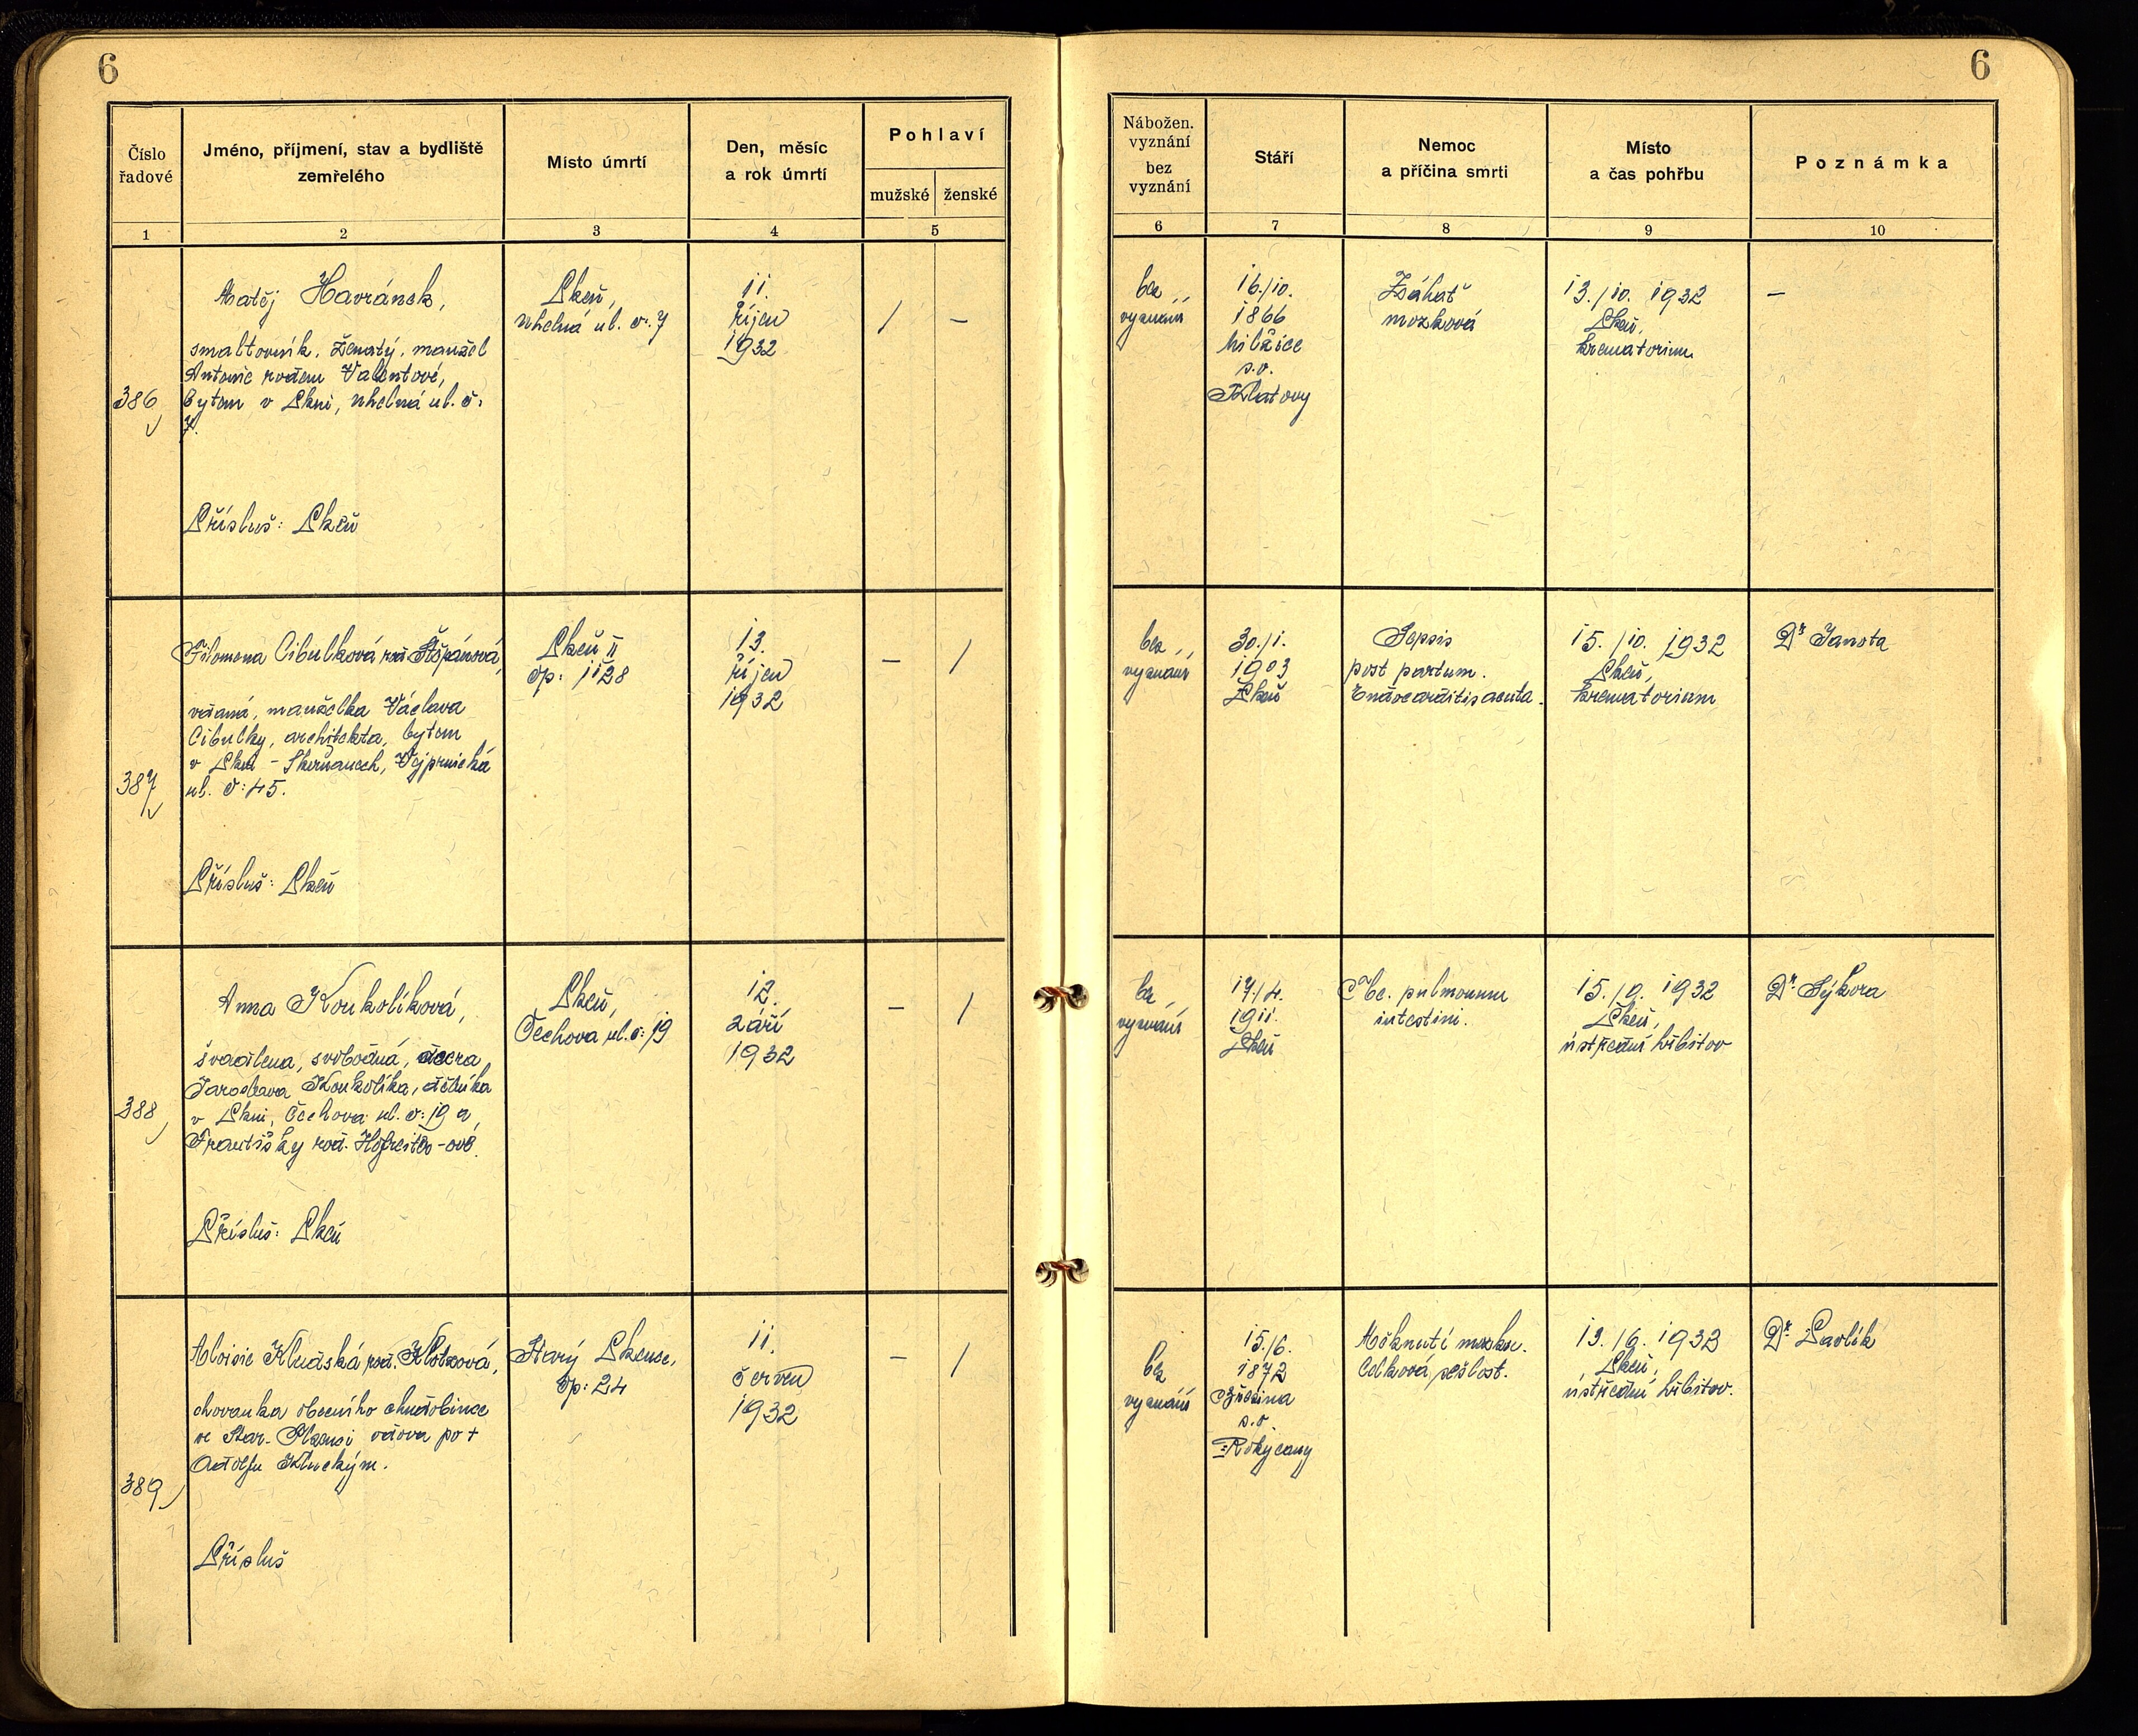 6
6
Číslo
řadové
Jméno, příjmení, stav a bydliště
zemřelého
Místo úmrtí
Den, měsíc
a rok úmrtí
Pohlaví
mužské
ženské
Nábožen.
vyznání
bez
vyznání
Stáří
Nemoc
a příčina smrti
Místo
a čas pohřbu
Poznámka
1
2
3
4
5
6
7
8
9
10
386
Matěj Havránek,
smaltovník, ženatý, manžel
Antonie rodem Valentové,
bytem v Plzni, Uhelná ul. č:
7.
Přísluš: Plzeň
Plzeň,
Uhelná ul. č. 7
11.
říjen
1932
/
–
bez
vyznání
16./10.
1866
s.o.
Klatovy
Záhať
mozková
13./10. 1932
Plzeň,
krematorium
–
387
Filomena Cibulková roz. Štěpánová,
vdaná, manželka Václava
Cibulky, architekta, bytem
v Plzni - Skvrňanech, Vejprnická
ul. č: 45.
Přísluš: Plzeň
Plzeň II
čp: 1128
13.
říjen
1932
–
/
bez
vyznání
30./1.
1903
Plzeň
Sepsis
post partum.
Endocarditis acuta.
15./10. 1932
Plzeň,
krematorium
Dr. Janota
388
Anna Koukolíková,
švadlena, svobodná, dcera
Jaroslava Koukolíka, dělníka
v Plzni, Čechova ul. č: 19 a
Františky rod.
Přísluš: Plzeň
Plzeň,
Čechova ul. č: 19
12.
září
1932
–
/
bez
vyznání
17./4.
1911.
Plzeň
Tbc. pulmonum
intestini.
15./9. 1932
Plzeň,
ústřední hřbitov
Dr. Sýkora
389
Aloisie rod.
chovanka obecního chudobince
ve Star. Plzenci vdova po +
Adolfu
Přísluš
Starý Plzenec,
čp: 24
11.
červen
1932
–
/
bez
vyznání
15./6.
1872
s.o.
Rokycany
Měknutí mozku.
Celková sešlost.
13./6. 1932
Plzeň,
ústřední hřbitov.
Dr. Pavlík